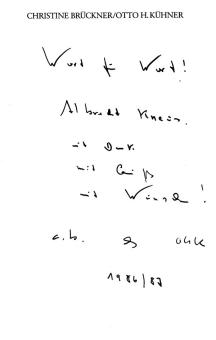 CHRISTINE BRÜCKNER/OTTO H. KÜHNER
Wort für Wort!
Albrecht Knaus
mit Dank
mit Gruß
mit Wünschen!
c.b. & ohk
1986/87